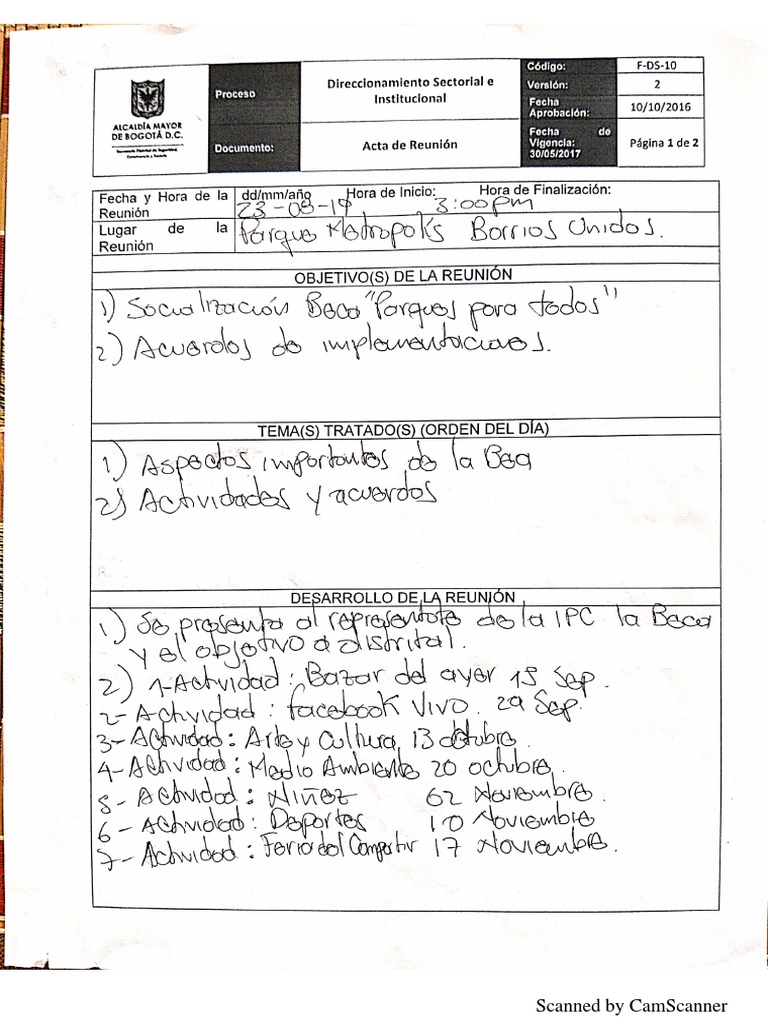 ALCALDÍA MAYOR
DE BOGOTÁ D.C.
Secretaría Distrital de Seguridad,
Convivencia y Justicia
Proceso
Direccionamiento Sectorial e
Institucional
Documento:
Acta de Reunión
Código:
F-DS-10
Versión:
2
Fecha
Aprobación:
10/10/2016
Fecha de
Vigencia:
30/05/2017
Página 1 de 2
Fecha y Hora de la
Reunión
dd/mm/año Hora de Inicio: Hora de Finalización:
23-08-19 3:00pm
Lugar de la
Reunión
Parque Metropolis Barrios Unidos.
OBJETIVO(S) DE LA REUNIÓN
1) Socialización Beca "Parques para todos"
2) Acuerdos de implementaciones.
TEMA(S) TRATADO(S) (ORDEN DEL DÍA)
1) Aspectos importantes de la Beca
2) Actividades y acuerdos
DESARROLLO DE LA REUNIÓN
1) Se presenta al representante de la IPC la Beca
y el objetivo a distrital.
2) 1-Actividad: Bazar del ayer 15 Sep.
2- Actividad: facebook Vivo. 29 Sep.
3- Actividad: Arte y Cultura 13 octubre.
4- Actividad: Medio Ambiente 20 octubre.
5- Actividad: Niñez 02 Noviembre.
6- Actividad: Deportes 10 Noviembre
7- Actividad: Feria del Compartir 17 Noviembre.
Scanned by CamScanner